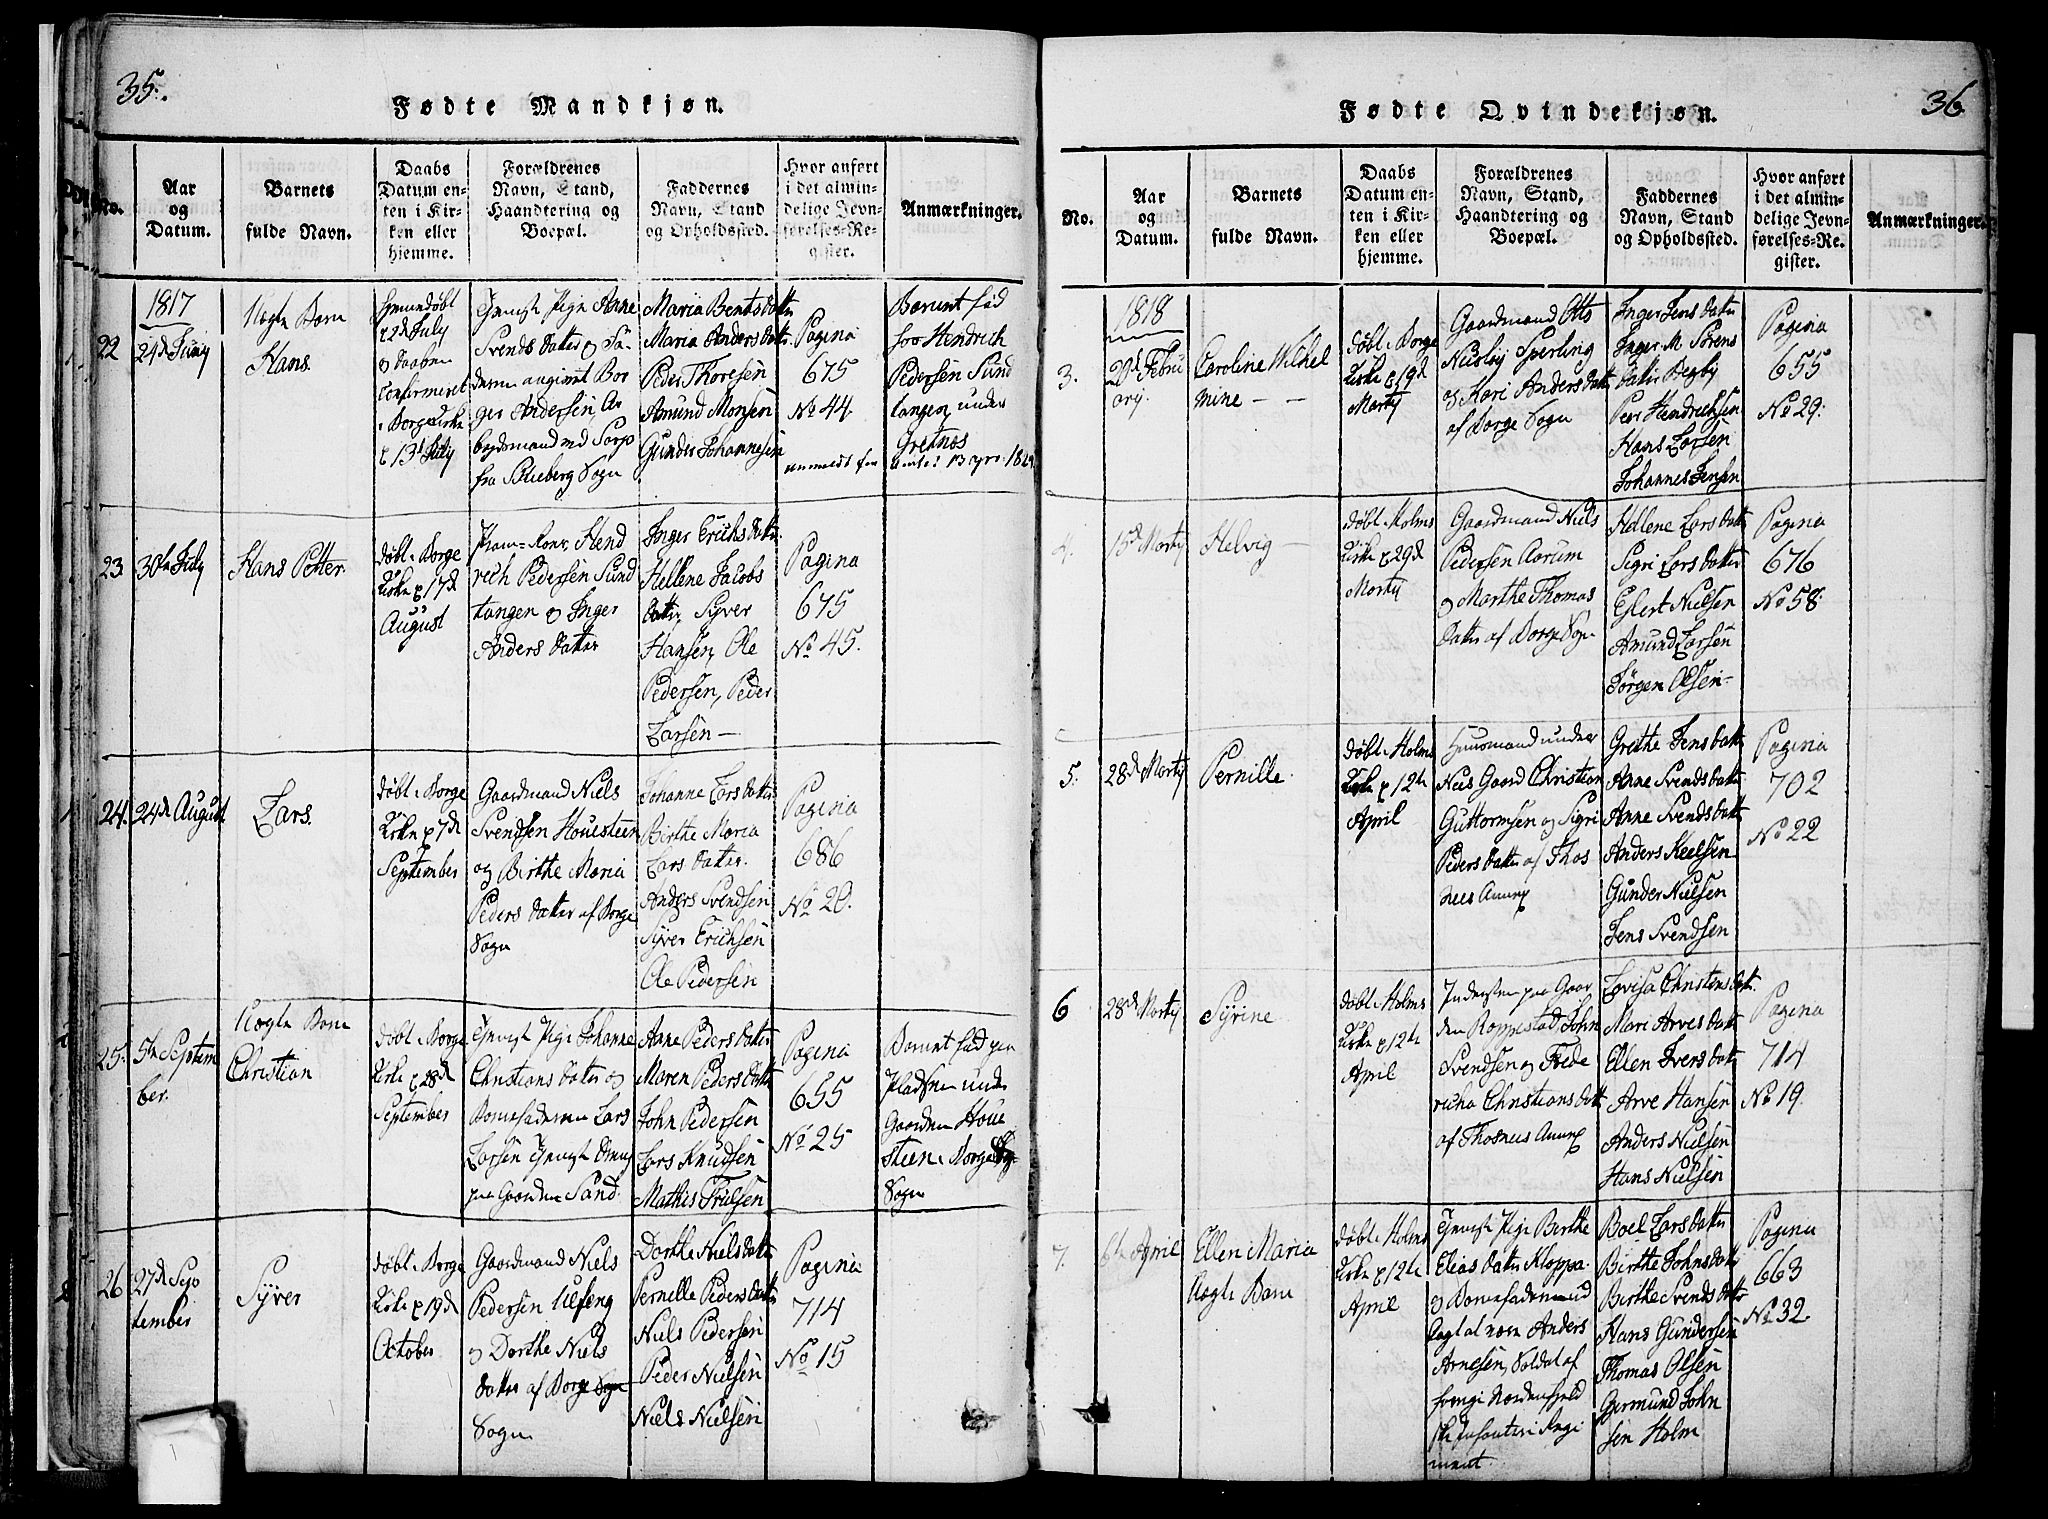 35.
Fødte Mandkjøn.
No.
Aar
og
Datum.
Barnets
fulde Navn.
Daabs
Datum en-
ten i Kir-
ken eller
hjemme.
Forældrenes
Navn, Stand,
Haandtering og
Boepæl.
Faddernes
Navn, Stand
og Opholdssted.
Hvor anført
i det almin-
delige Jevn-
førelses-Re-
gister.
Anmærkninger.
22
1817
24d Juny
Uægte Barn
Hans.
Hjemmedøbt
22d July
og Daaben
Confirmeret
i Borge Kirke
13d July
Pige Anne
Svends datter og Fa
deren angivet Bor
ger Andersen,
fra Sogn
Maria Bentsdatter
Maria Andersdatter
Peder Thoresen
Amund Monsen
Gunder Johannesen
Pagina
675
No 44.
Barnet fød
hos Hendrich
Pedersen Sund
tangen under
Gretnes
23.
30te July
Hans Petter
døbt i Borge
Kirke 17d
August
Hend
rich Pedersen Sund
tangen og Inger
Anders datter
Inger Erichs datter
Hellene Jacobs
datter, Syver
Hansen, Ole
Pedersen, Peder
Larsen —
Pagina
675
No 45.
24.
24d August
Lars.
døbt i Borge
Kirke 7d
September
Gaardmand Niels
Svendsen Houesteen
og Birthe Maria
Peders datter af Borge
Sogn
Johanne Lars datter
Birthe Maria
Lars datter.
Anders Svendsen
Syver Erichsen
Ole Pedersen
Pagina
686
No 20.
25.
5te Septem
ber.
Uægte Barn
Christian
døbt i Borge
Kirke 28d
September
Pige Johanne
Christians datter og
Barnefaderen Lars
Larsen
paa Gaarden Sand.
Anne Peders datter
Maren Peders datter
John Pedersen
Lars Knudsen
Mathis Frielsen
Pagina
655
No 25
Barnet fød paa
Pladsen under
Gaarden Houe
steen i Borge
Sogn
26
27d Sep
tember
Syver
døbt i Borge
Kirke 19d
October
Gaardmand Niels
Pedersen Ulfseng
og Dorthe Niels
datter af Borge
Sogn
Dorthe Niels datter
Pernelle Peders datter
Niels Pedersen
Peder Nielsen
Niels Nielsen
Pagina
714
No 15
36
Fødte Qvindekjøn.
No.
Aar
og
Datum.
Barnets
fulde Navn.
Daabs
Datum en-
ten i Kir-
ken eller
hjemme.
Forældrenes
Navn, Stand,
Haandtering og
Boepæl.
Faddernes
Navn, Stand
og Opholdssted.
Hvor anført
i det almin-
delige Jevn-
førelses-Re-
gister.
Anmærkninger.
3.
1818
20d Febru
ary.
Caroline Wilhel
mine — —
døbt i Borge
Kirke 19d
Marty
Gaardmand Otto
Nicolay Sperling
og Kari Anders datter
af Borge Sogn
Inger Jens datter
Inger M. Sørens
datter Begby
Peer Hendrichsen
Hans Larsen
Johannes Jensen
Pagina
655
No 29.
4.
15d Marty
Helvig —
døbt i Holms
Kirke 29d
Marty
Gaardmand Niels
Pedersen Aarum
og Marthe Thomas
datter af Borge Sogn
Hellene Lars datter
Sigri Lars datter
Eylert Nielsen
Amund Larsen
Jørgen Olsen —
Pagina
676
No 58.
5.
28d Marty
Pernille.
døbt i Holms
Kirke 12te
April
Huusmand under
Nees Gaard Christian
Guttormsen og Sigri
Peders datter af Thos
nees Annex
Grethe Jens datter
Anne Svends datter
Anne Svends datter
Anders Keelsen
Gunder Nielsen
Jens Svendsen
Pagina
702
No 22
6
28d Marty
Syrine
døbt i Holms
Kirke 12te
April
Inderster paa Gaar
den Roppestad John
Svendsen og Frede
richa Christians datter
af Thosnees Annex
Lovisa Christens datter.
Mari Arves datter
Ellen Ivers datter
Arve Hansen
Anders Nielsen
Hans Nielsen
Pagina
714
No 19.
7.
6te April
Ellen Maria
Uægte Barn
døbt i Holms
Kirke 12te
April
Pige Birthe
Elias datter Kloppa.
og Barnefaderen ud
lagt at være Anders
Arnesen, Soldat af
Nordenfjeld
ske Infanteri Regi
ment.
Boel Lars datter
Birthe Johns datter
Birthe Svends datter
Hans Gundersen
Thomas Olsen
Germund John
sen Holm
Pagina
663
No 32.